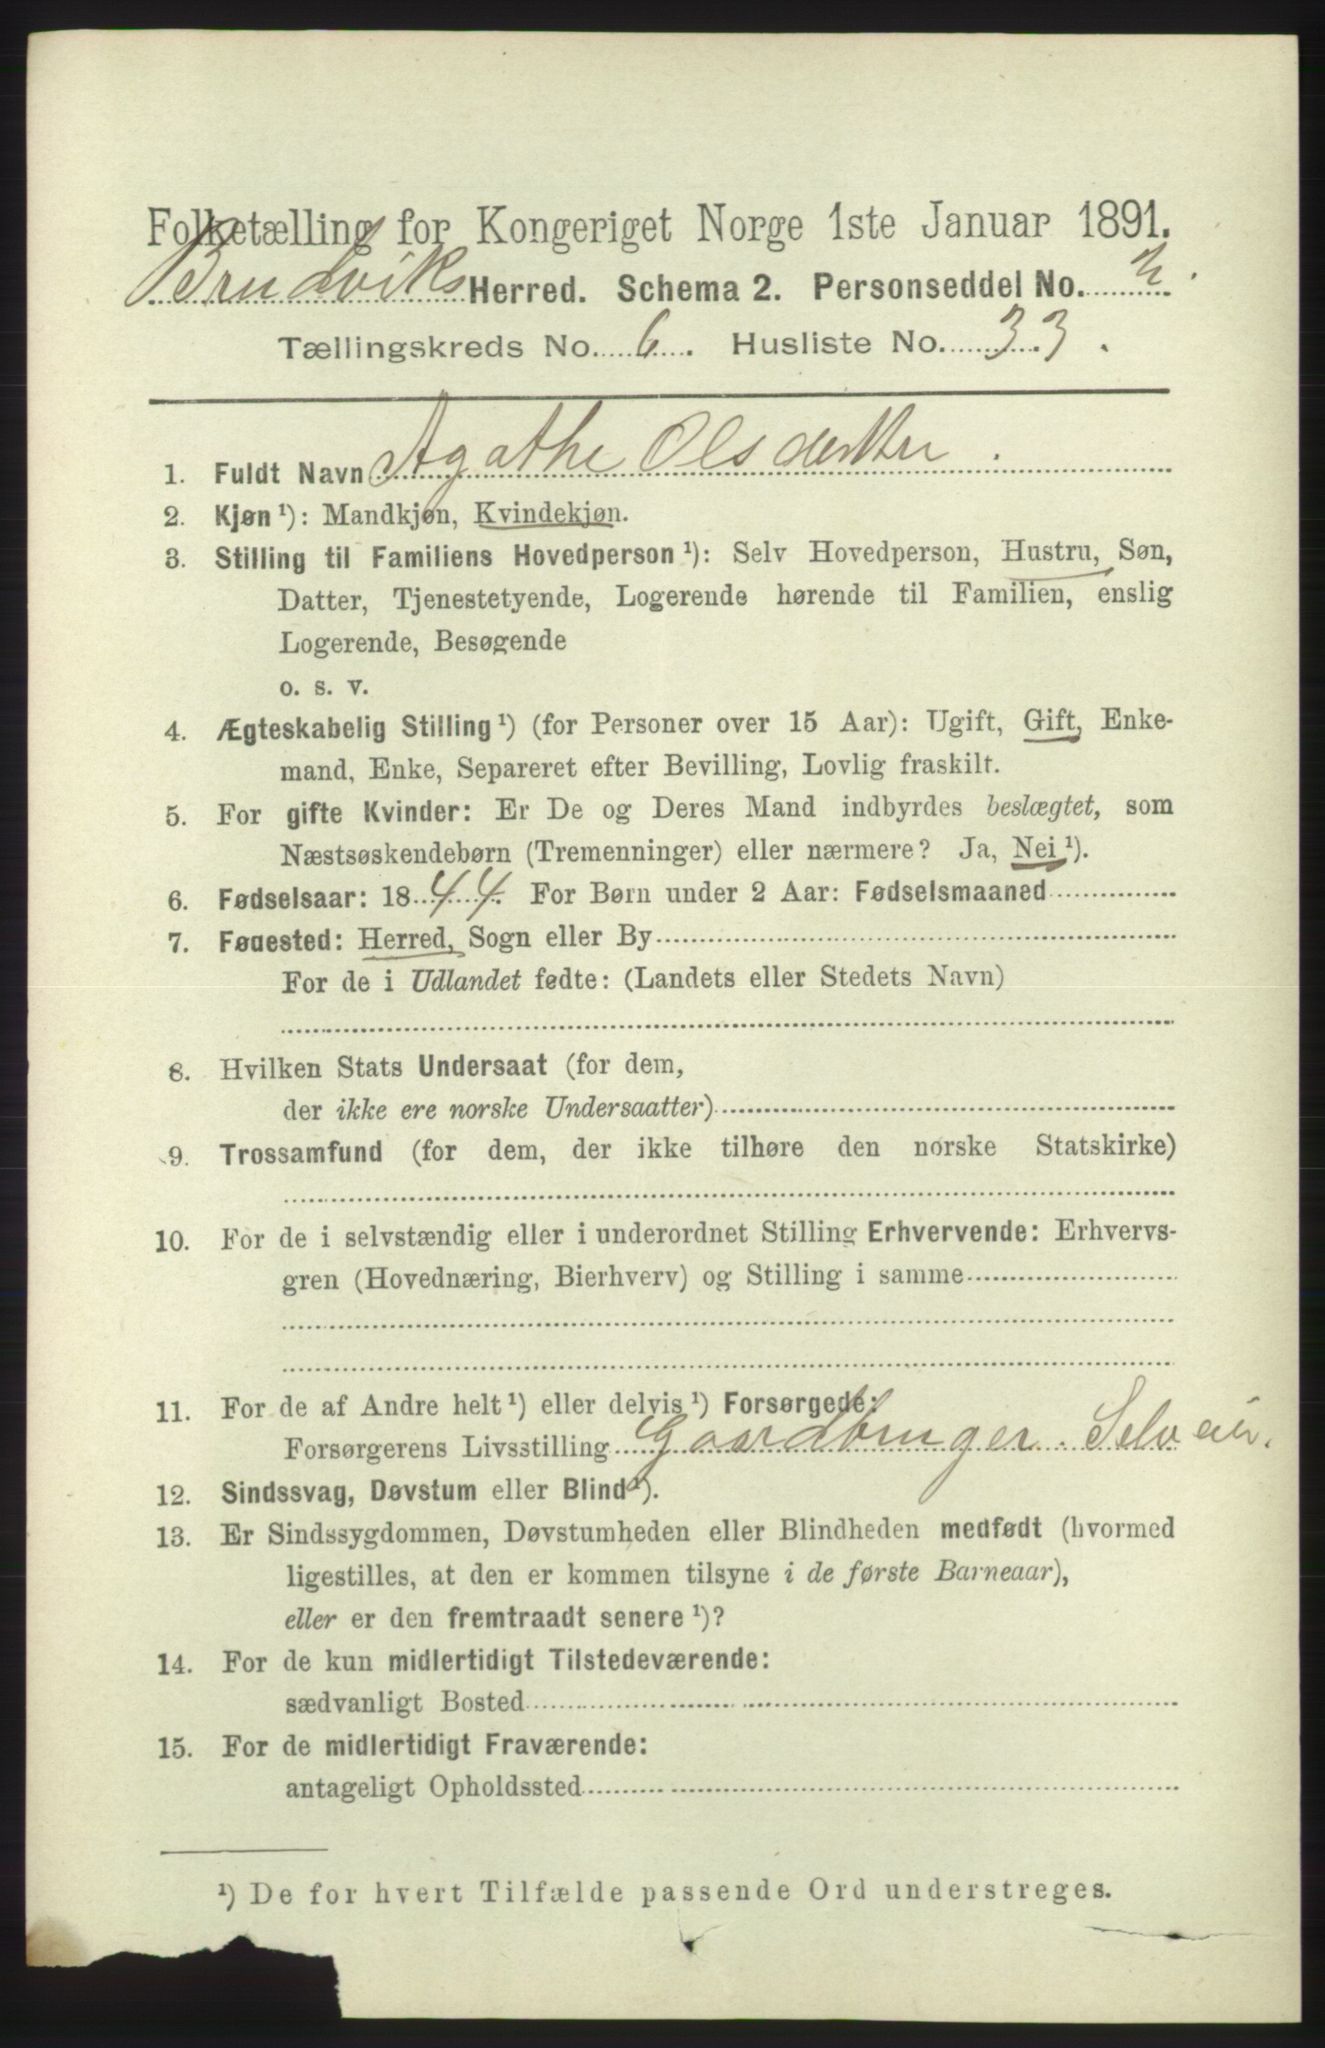 Folketælling for Kongeriget Norge 1ste Januar 1891.
Brudviks Herred. Schema 2. Personseddel No. 2.
Tællingskreds No. 6. Husliste No. 33.
1. Fuldt Navn Agathe Olsdatter.
2. Kjøn¹): Mandkjøn, Kvindekjøn.
3. Stilling til Familiens Hovedperson¹): Selv Hovedperson, Hustru, Søn,
Datter, Tjenestetyende, Logerende hørende til Familien, enslig
Logerende, Besøgende
o. s. v.
4. Ægteskabelig Stilling¹) (for Personer over 15 Aar): Ugift, Gift, Enke-
mand, Enke, Separeret efter Bevilling, Lovlig fraskilt.
5. For gifte Kvinder: Er De og Deres Mand indbyrdes beslægtet, som
Næstsøskendebørn (Tremenninger) eller nærmere? Ja, Nei¹).
6. Fødselsaar: 1844. For Børn under 2 Aar: Fødselsmaaned
7. Fødested: Herred, Sogn eller By
For de i Udlandet fødte: (Landets eller Stedets Navn)
8. Hvilken Stats Undersaat (for dem,
der ikke ere norske Undersaatter)
9. Trossamfund (for dem, der ikke tilhøre den norske Statskirke)
10. For de i selvstændig eller i underordnet Stilling Erhvervende: Erhvervs-
gren (Hovednæring, Bierhverv) og Stilling i samme
11. For de af Andre helt¹) eller delvis¹) Forsørgede:
Forsørgerens Livsstilling Gaardbruger. Selveier.
12. Sindssvag, Døvstum eller Blind¹).
13. Er Sindssygdommen, Døvstumheden eller Blindheden medfødt (hvormed
ligestilles, at den er kommen tilsyne i de første Barneaar),
eller er den fremtraadt senere¹)?
14. For de kun midlertidigt Tilstedeværende:
sædvanligt Bosted
15. For de midlertidigt Fraværende:
antageligt Opholdssted
¹) De for hvert Tilfælde passende Ord understreges.